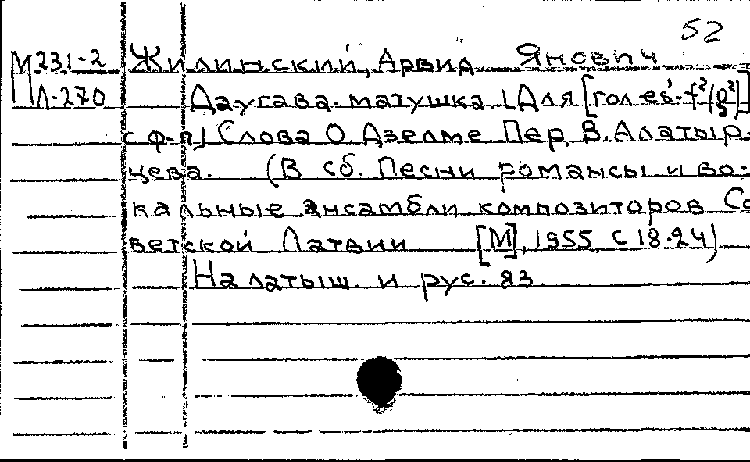 52
М231-2 Жилинский, Арвид Янович
Л-270 Даугава-матушка [Для [голев. f²(g²)]
с ф-п] Слова О. Дзелме Пер. В. Алатыр-
цева. (В сб. Песни романсы и во-
кальные ансамбли композиторов Со
ветской Латвии [М], 1955 с 18-24)
На латыш. и рус. яз.